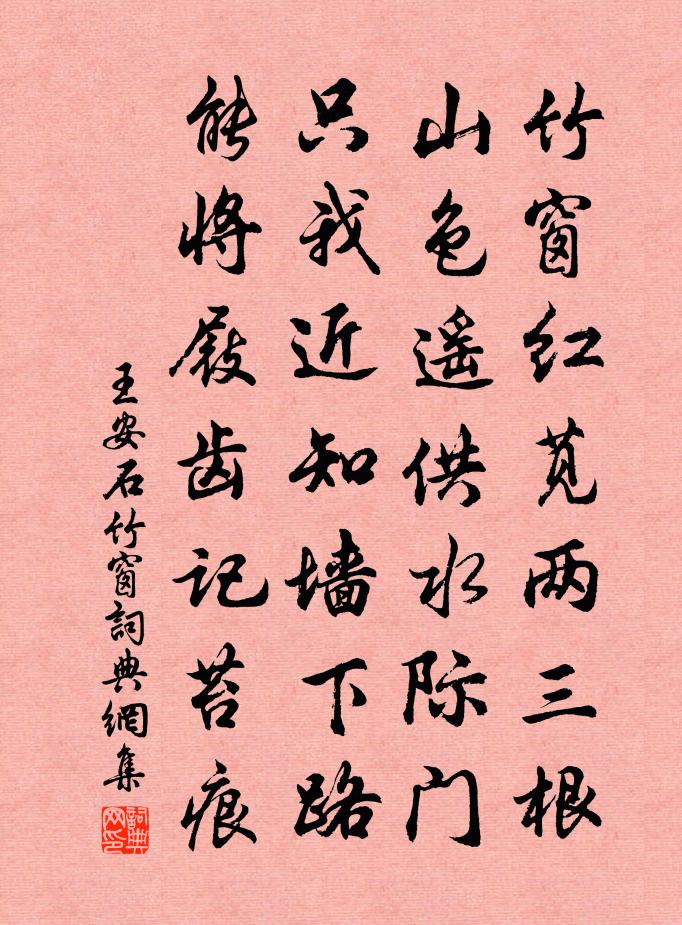 竹窗红苋两三根
山色遥供水际门
只我近知墙下路
能将屐齿记苔痕
王安石竹窗詞典網集
詞典网印